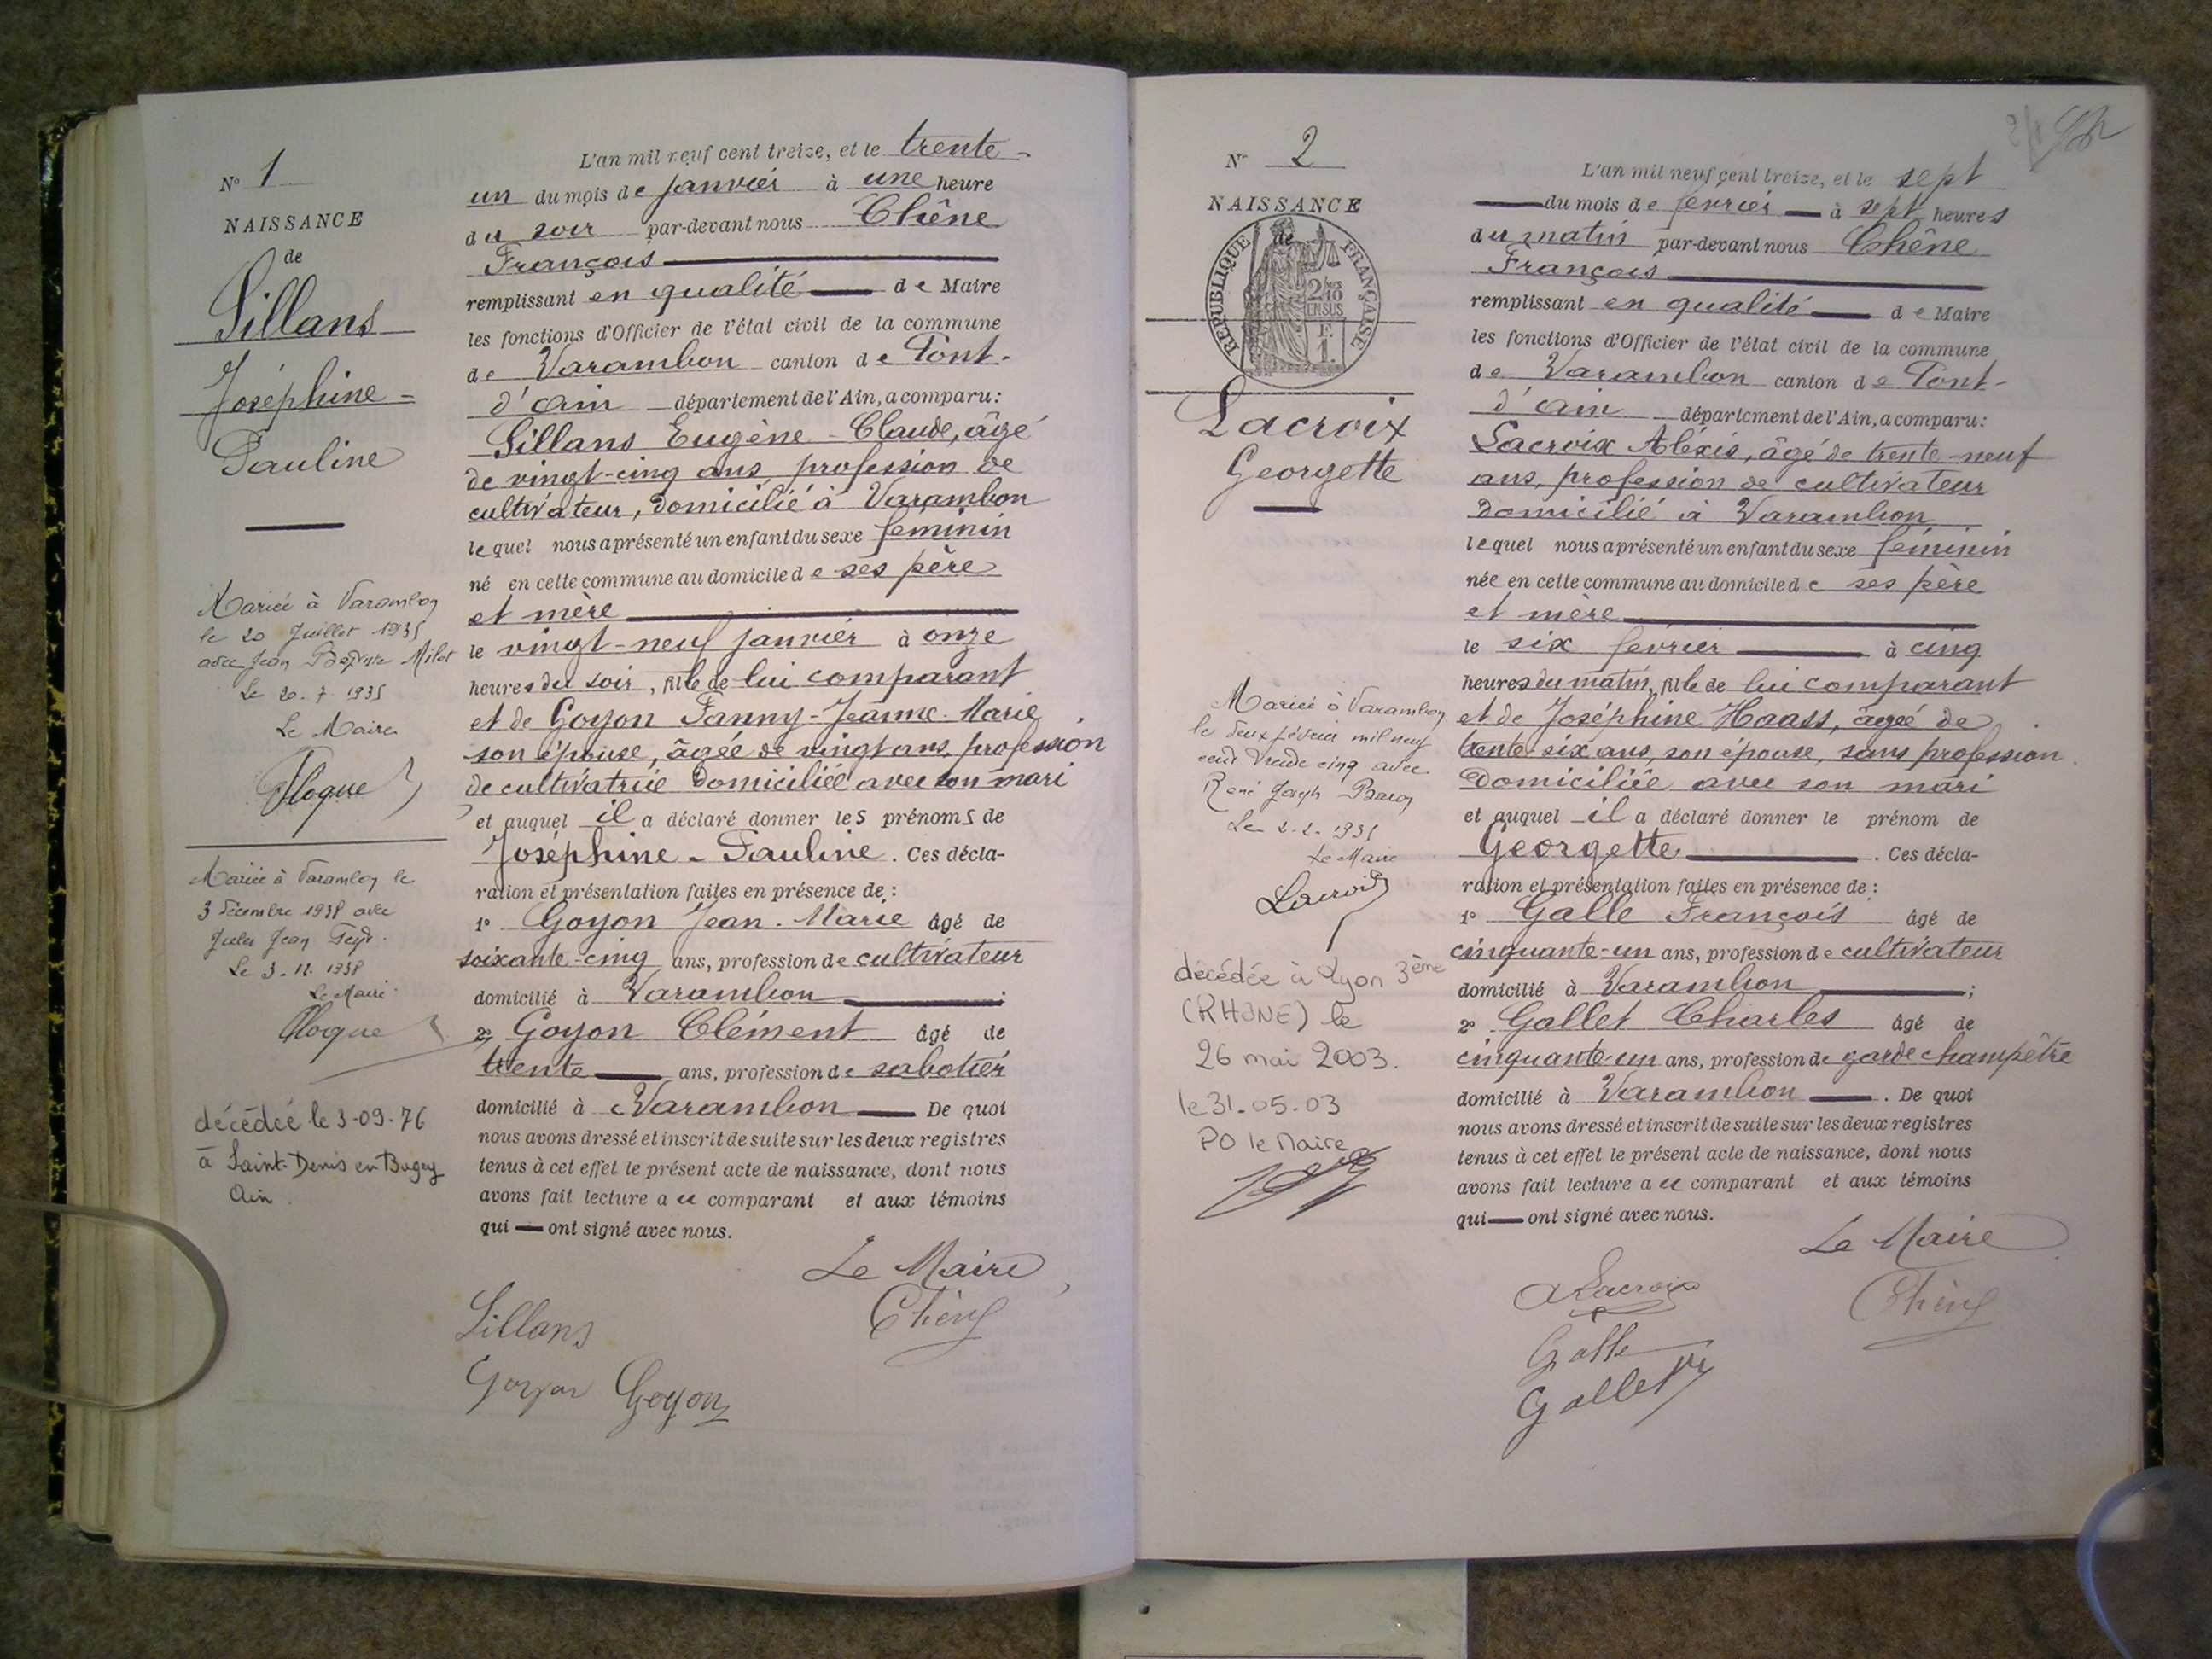 N° 1
NAISSANCE
de
Sillans
Joséphine-
Pauline
Mariée à Varambon
le 20 Juillet 1935
avec Jean Baptiste Milot
Le 20.7.1935
Le Maire
Mariée à Varambon le
3 décembre 1938 avec
Jules Jean
Le 3-12.1938
Le Maire
décédée le 3-09-76
à Saint-Denis en Bugey
Ain.
L'an mil neuf cent treize, et le trente-
un du mois de janvier à une heure
du soir par-devant nous Chêne
François
remplissant en qualité de Maire
les fonctions d'Officier de l'état civil de la commune
de Varambon canton de Pont-
d'ain département de l'Ain, a comparu:
Sillans Eugène-Claude, âgé
de vingt-cinq ans, profession de
cultivateur, domicilié à Varambon
lequel nous a présenté un enfant du sexe féminin
né en cette commune au domicile de ses père
et mère
le vingt-neuf janvier à onze
heures du soir, fille de lui comparant
et de Goyon Fanny-Jeanne-Marie,
son épouse, âgée de vingt ans, profession
de cultivatrice domiciliée avec son mari
et auquel il a déclaré donner les prénoms de
Joséphine-Pauline. Ces décla-
ration et présentation faites en présence de:
1° Goyon Jean-Marie âgé de
soixante-cinq ans, profession de cultivateur
domicilié à Varambon;
2° Goyon Clément âgé de
trente ans, profession de sabotier
domicilié à Varambon De quoi
nous avons dressé et inscrit de suite sur les deux registres
tenus à cet effet le présent acte de naissance, dont nous
avons fait lecture au comparant et aux témoins
qui ont signé avec nous.
Le Maire
Sillans
Chêne
Goyon Goyon
N° 2
NAISSANCE
de
REPUBLIQUE FRANÇAISE
2/10
EN SUS
F.
1.
Lacroix
Georgette
Mariée à Varambon
le deux février mil neuf
cent trente cinq avec
René Joseph Baron
Le 2.2.1935
Le Maire
Lacroix
décédée à Lyon 3ème
(RHÔNE) le
26 mai 2003.
le 31-05-03
PO le Maire
L'an mil neuf cent treize, et le sept
du mois de février à sept heures
du matin par-devant nous Chêne
François
remplissant en qualité de Maire
les fonctions d'Officier de l'état civil de la commune
de Varambon canton de Pont-
d'ain département de l'Ain, a comparu:
Lacroix Aléxis, âgé de trente-neuf
ans, profession de cultivateur
domicilié à Varambon
lequel nous a présenté un enfant du sexe féminin
née en cette commune au domicile de ses père
et mère
le six février à cinq
heures du matin, fille de lui comparant
et de Joséphine Haass, âgée de
trente-six ans, son épouse, sans profession
domiciliée avec son mari
et auquel il a déclaré donner le prénom de
Georgette. Ces décla-
ration et présentation faites en présence de:
1° Galle François âgé de
cinquante-un ans, profession de cultivateur
domicilié à Varambon;
2° Gallet Charles âgé de
cinquante-un ans, profession de garde champêtre
domicilié à Varambon. De quoi
nous avons dressé et inscrit de suite sur les deux registres
tenus à cet effet le présent acte de naissance, dont nous
avons fait lecture au comparant et aux témoins
qui ont signé avec nous.
Le Maire
A Lacroix
Chêne
Galle
Gallet